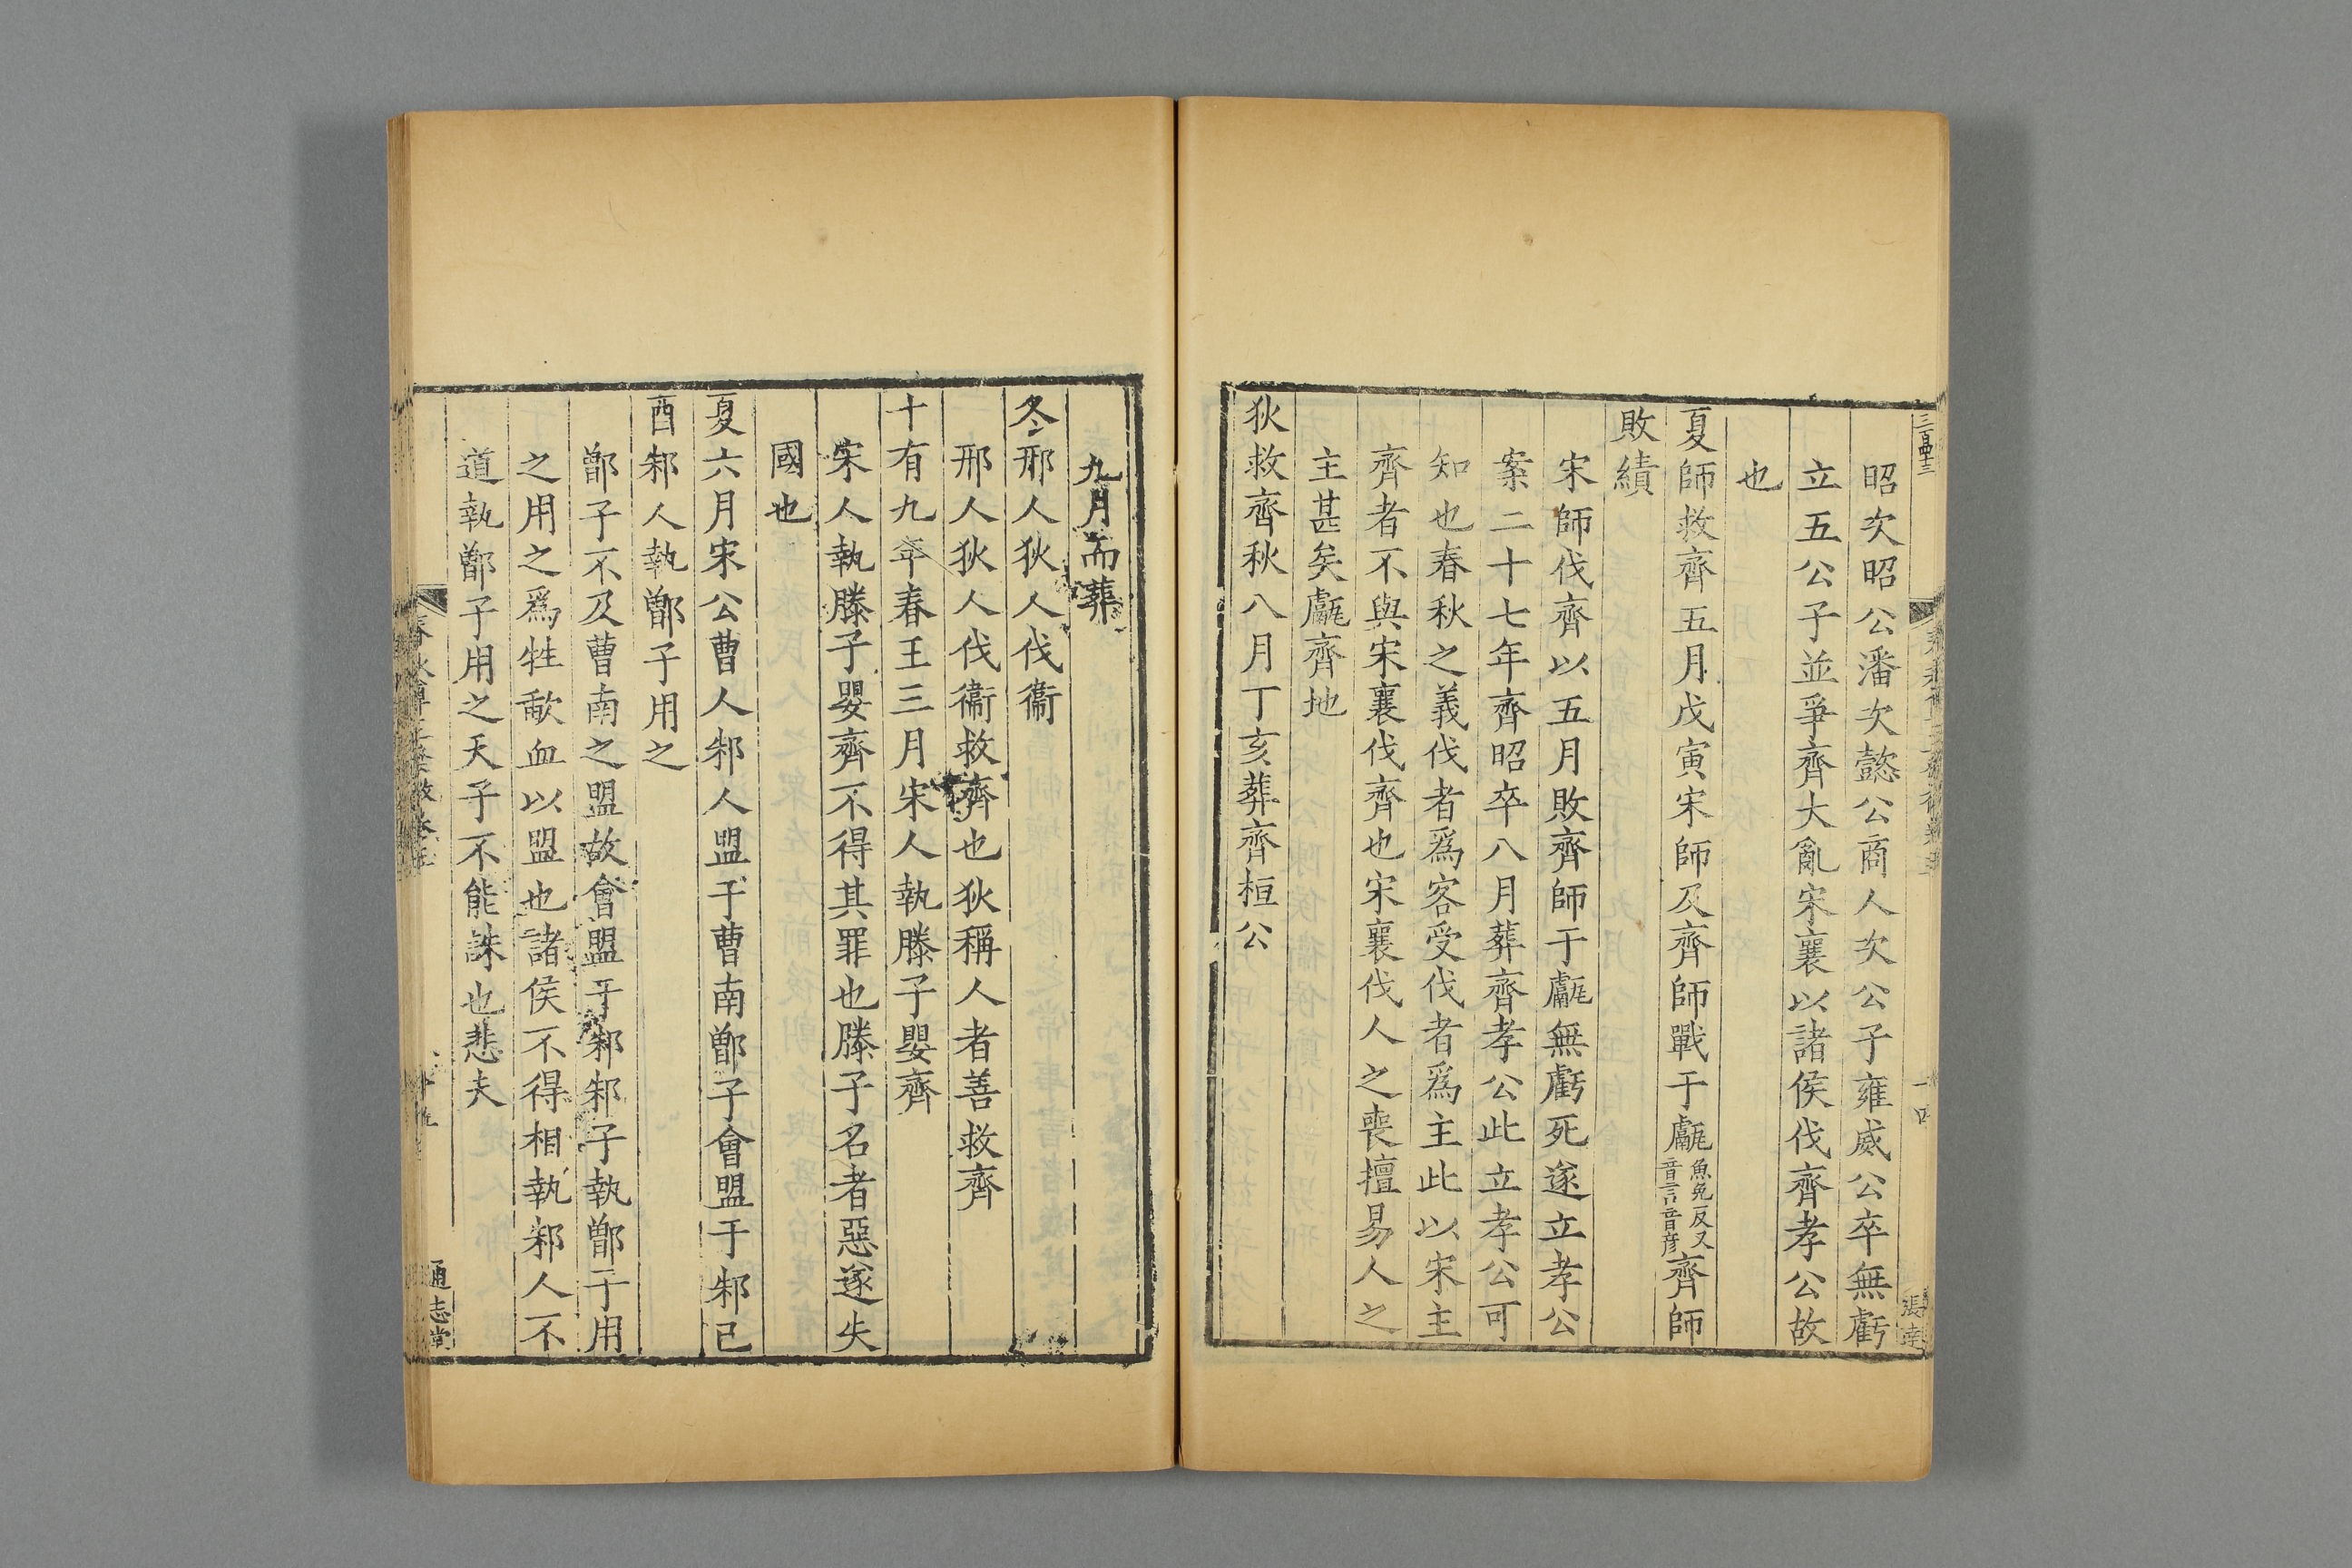 三百四十三
昭次昭公潘次懿公商人次公子雍威公卒無虧
立五公子並爭齊大亂宋襄以諸侯伐齊孝公故
也
夏師救齊五月戊寅宋師及齊師戰于甗魚免反又音言音彦齊師
敗績
宋師伐齊以五月敗齊師于甗無虧死遂立孝公
案二十七年齊昭卒八月葬齊孝公此立孝公可
知也春秋之義伐者爲客受伐者爲主此以宋主
齊者不與宋襄伐齊也宋襄伐人之喪擅易人之
主甚矣甗齊地
狄救齊秋八月丁亥葬齊桓公
九月而葬
冬邢人狄人伐衞
邢人狄人伐衞救齊也狄稱人者善救齊
十有九年春王三月宋人執滕子嬰齊
宋人執滕子嬰齊不得其罪也滕子名者惡遂失
國也
夏六月宋公曹人邾人盟于曹南鄫子會盟于邾已
酉邾人執鄫子用之
鄫子不及曹南之盟故會盟于邾邾子執鄫于用
之用之爲牲歃血以盟也諸侯不得相執邾人不
道執鄫子用之天子不能誅也悲夫
通志堂